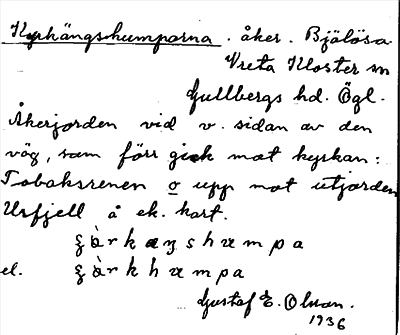 Kyrkängshumparna . åker . Bjälösa
Vreta Kloster sn
Gullbergs hd. Ögl.
Åkerjorden vid v. sidan av den
väg, som förr gick mot kyrkan:
Tobaksrenen o upp mot utjorden
Urfjell å ek. kart.
el.
Gustaf E. Olson.
1936